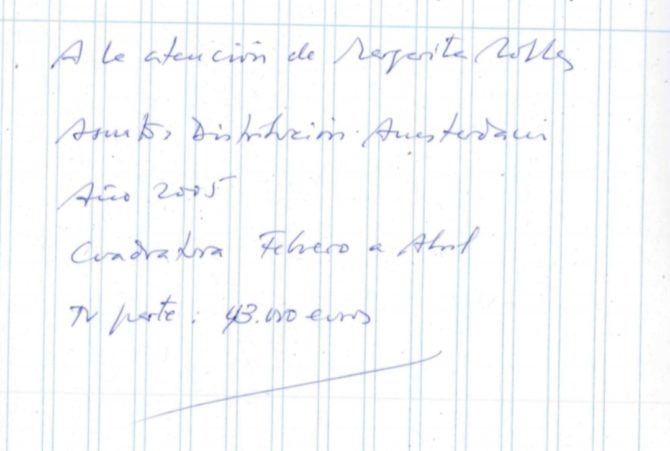 A la atención de Margarita Robles
Asunto: Distribución Amsterdam
Año 2005
Cuadratura Febrero a Abril
Tu parte: 43.000 euros